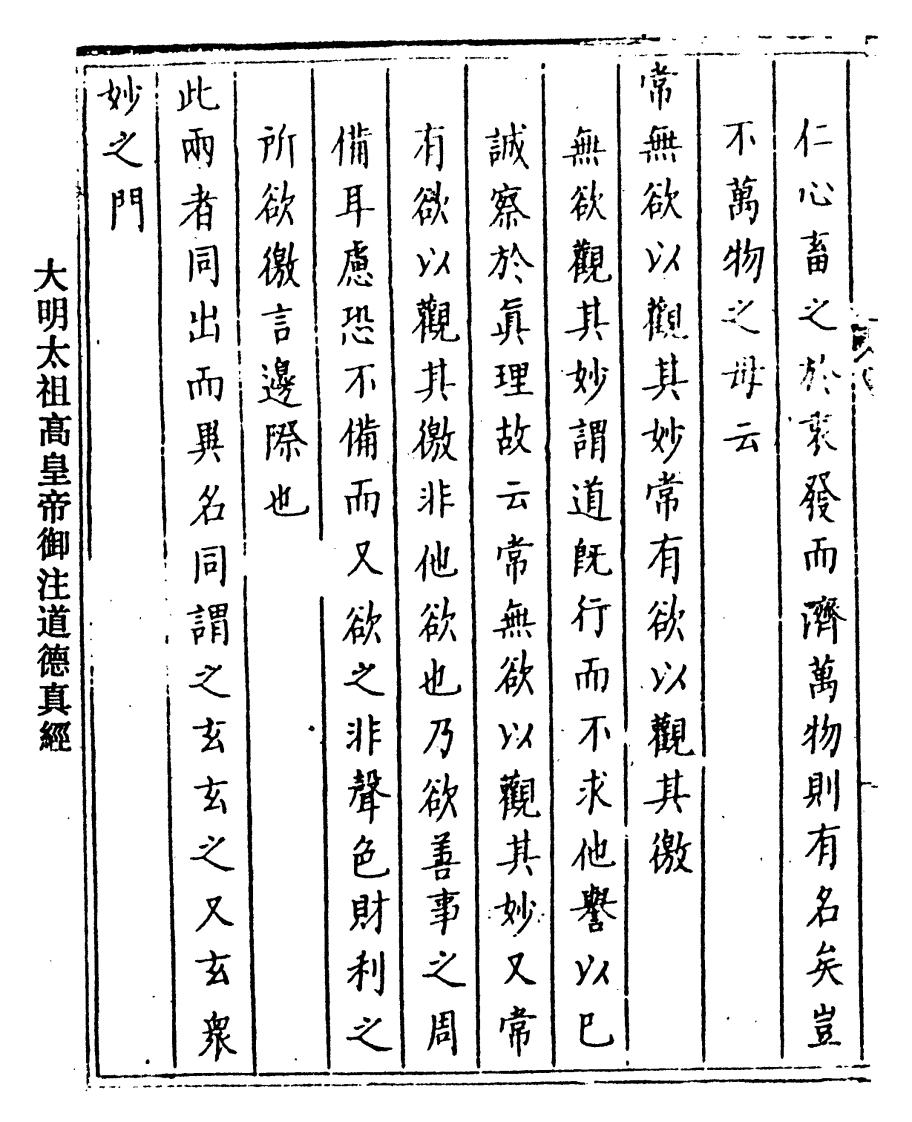 仁心畜之於衷發而濟萬物則有名矣豈
不萬物之母云
常無欲以觀其妙常有欲以觀其徼
無欲觀其妙謂道既行而不求他譽以己
誠察於眞理故云常無欲以觀其妙又常
有欲以觀其徼非他欲也乃欲善事之周
備耳慮恐不備而又欲之非聲色財利之
所欲徼言邊際也
此兩者同出而異名同謂之玄玄之又玄衆
妙之門
大明太祖高皇帝御注道德真經